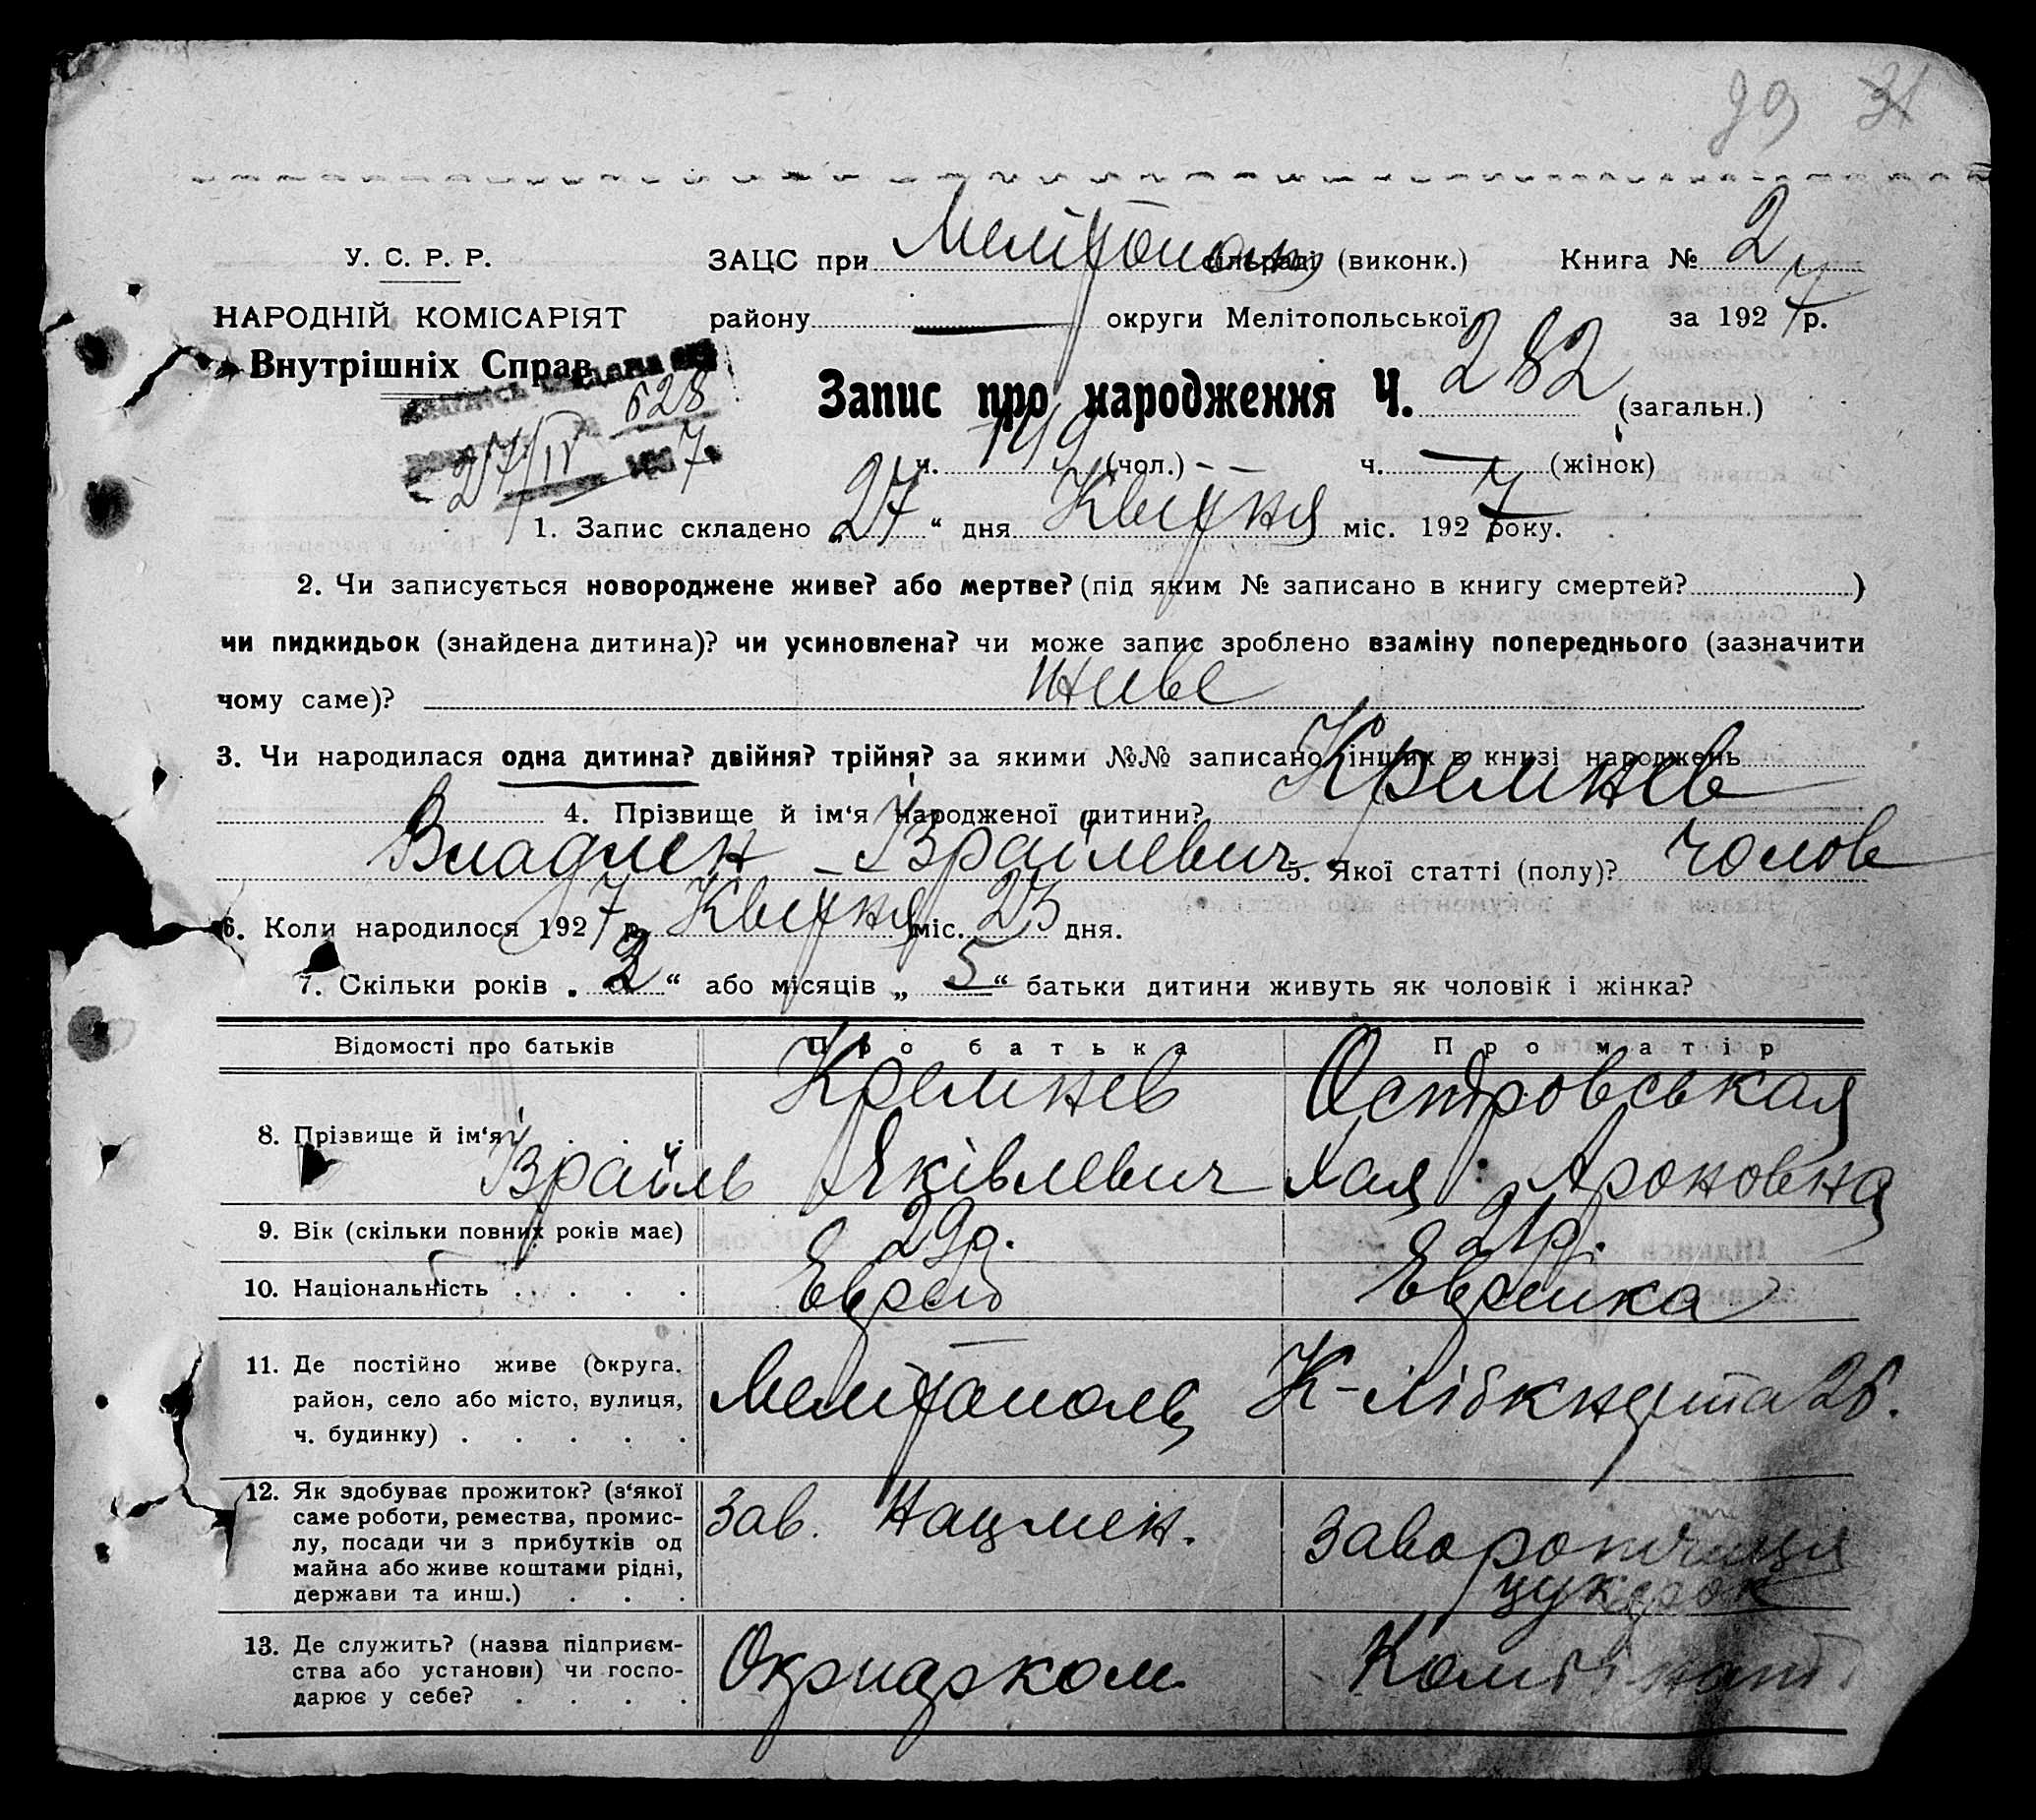 29 31
У. С. Р. Р. ЗАЦС при Мелітополь сільраді (виконк.) Книга № 2
НАРОДНІЙ КОМІСАРІЯТ району — округи Мелітопольської за 1927 р.
Внутрішніх Справ
628
Запис про народження Ч. 282 (загальн.)
27/IV 1927.
ч. 149 (чол.) — — ч. — (жінок)
1. Запис складено „27“ дня Квітня міс. 1927 року.
2. Чи записується новороджене живе? або мертве? (під яким № записано в книгу смертей? )
чи пидкидьок (знайдена дитина)? чи усиновлена? чи може запис зроблено взаміну попереднього (зазначити
чому саме)? живе
3. Чи народилася одна дитина? двійня? трійня? за якими №№ записано інших в книзі народжень
4. Прізвище й ім‘я народженої дитини? Кремнев
Владлен Ізраїлевич 5. Якої статті (полу)? чолов
6. Коли народилося 1927 р. Квітня міс. 23 дня.
7. Скільки років „3“ або місяців „5“ батьки дитини живуть як чоловік і жінка?
Відомості про батьків Про батька Про матір
Кремнев Островськая
8. Прізвище й ім‘я . . . .
Ізраїль Яківлевич Хая Ароновна
9. Вік (скільки повних років має) 29р. 21р.
10. Національність . . . . Еврей Еврейка
11. Де постійно живе (округа,
район, село або місто, вулиця, Мелітополь К-Лібкнехта 26.
ч. будинку) . . . . .
12. Як здобуває прожиток? (з‘якої
саме роботи, ремества, промис- Зав. Нацмен.
лу, посади чи з прибутків од
майна або живе коштами рідні, цукерок
держави та инш.) . . .
13. Де служить? (назва підприєм-
ства або установи) чи госпо- Окрпарком
дарює у себе? . . . .